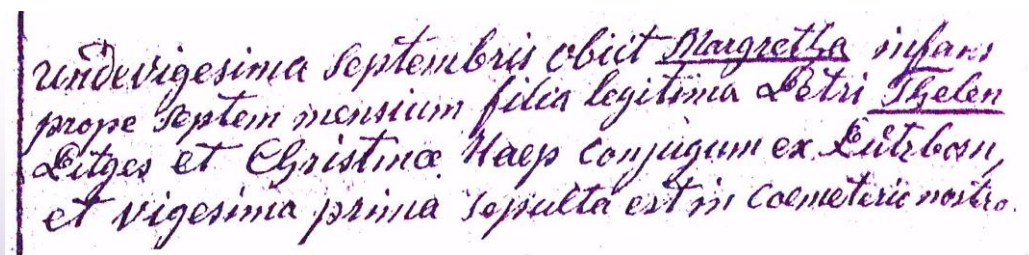 undevigesima Septembris obiit Margretha infans
prope Septem mensium filia legitima Petri Thelen
Pitges et Christinæ Haep conjugum ex Lutzborn,
et vigesima prima sepulta est in coemeterio nostro.